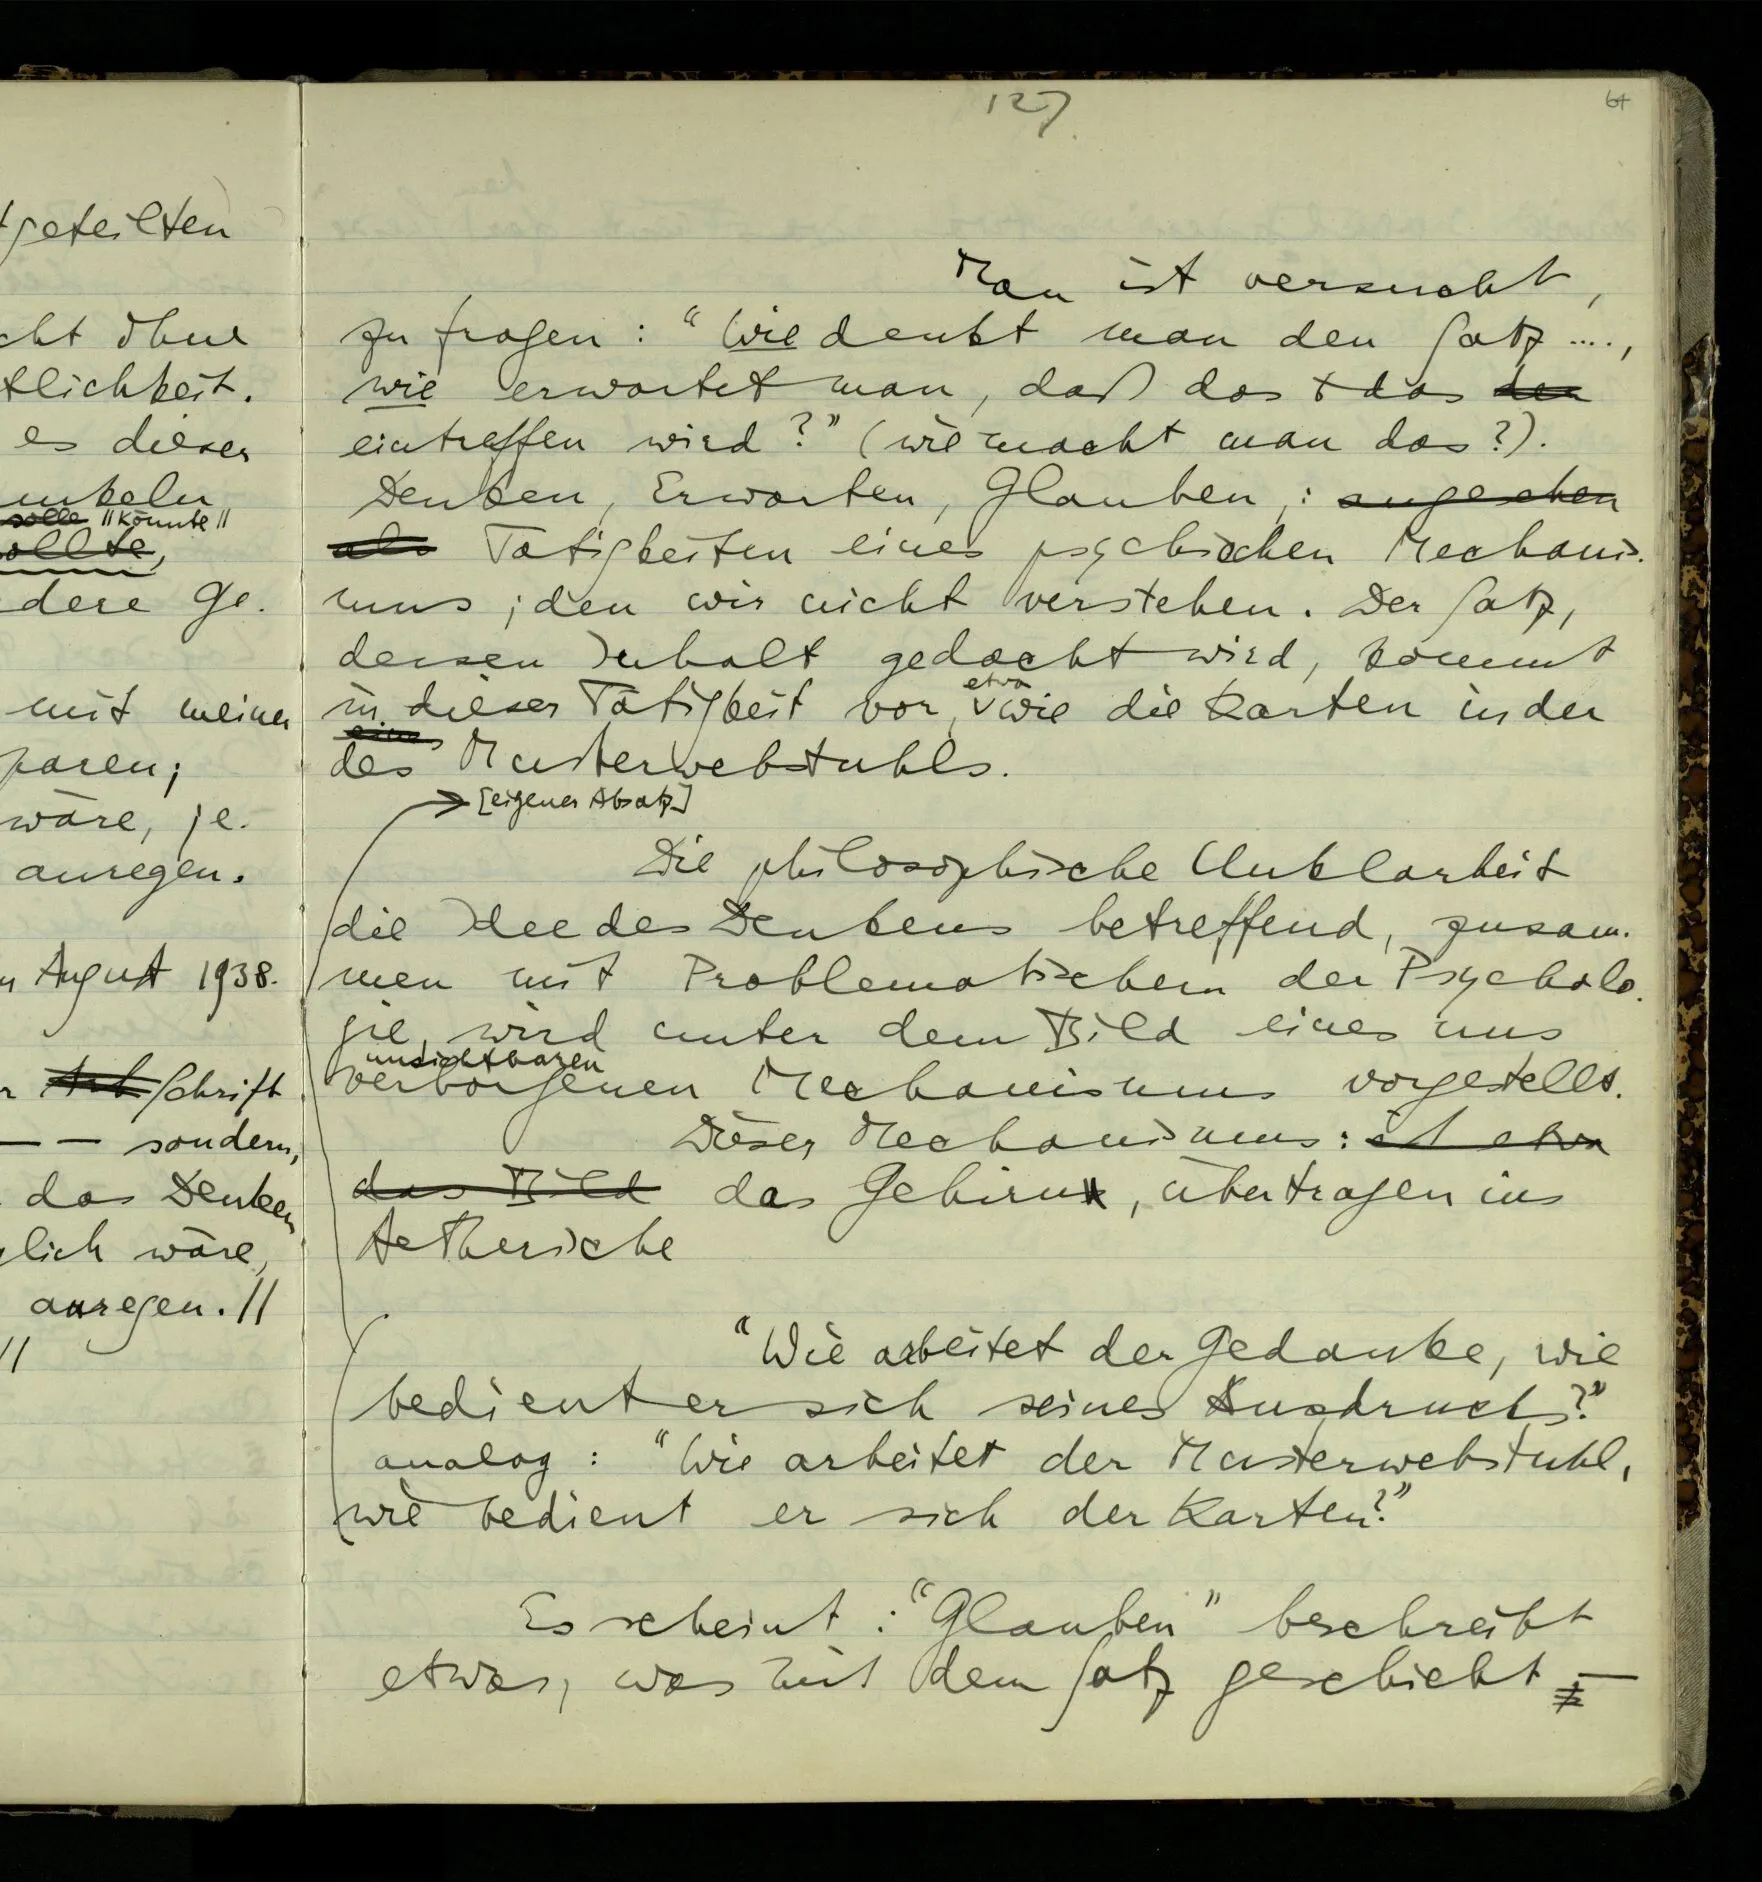 geteilten
cht ohne
tlichkeit.
es dieser
unkeln
solle // könnte //
sollte,
dere Ge-
mit meiner
paren;
wäre, je-
anregen.
August 1938.
Arb Schrift
— — sondern,
das Denken
glich wäre,
anregen. //
//
127
64
Man ist versucht,
zu fragen: "Wie denkt man den Satz ....,
wie erwartet man, daß das + das den
eintreffen wird?" (wie macht man das?).
Denken, Erwarten, Glauben,: angesehen
als Tätigkeiten eines psychischen Mechanis-
mus; den wir nicht verstehen. Der Satz,
dessen Inhalt gedacht wird, kommt
etwa
in dieser Tätigkeit vor, wie die Karten in der
eines
des Musterwebstuhls.
[eigener Absatz]
Die philosophische Unklarheit
die Idee des Denkens betreffend, zusam-
men mit Problematischem der Psycholo-
gie, wird unter dem Bild eines uns
unsichtbaren
verborgenen Mechanismus vorgestellt.
Dieser Mechanismus: ist etwa
das Bild das Gehirn, übertragen ins
Aetherische
"Wie arbeitet der Gedanke, wie
bedient er sich seines Ausdrucks?"
analog: "Wie arbeitet der Musterwebstuhl,
wie bedient er sich der Karten?"
Es scheint: "Glauben" beschreibt
etwas, was mit dem Satz geschieht —